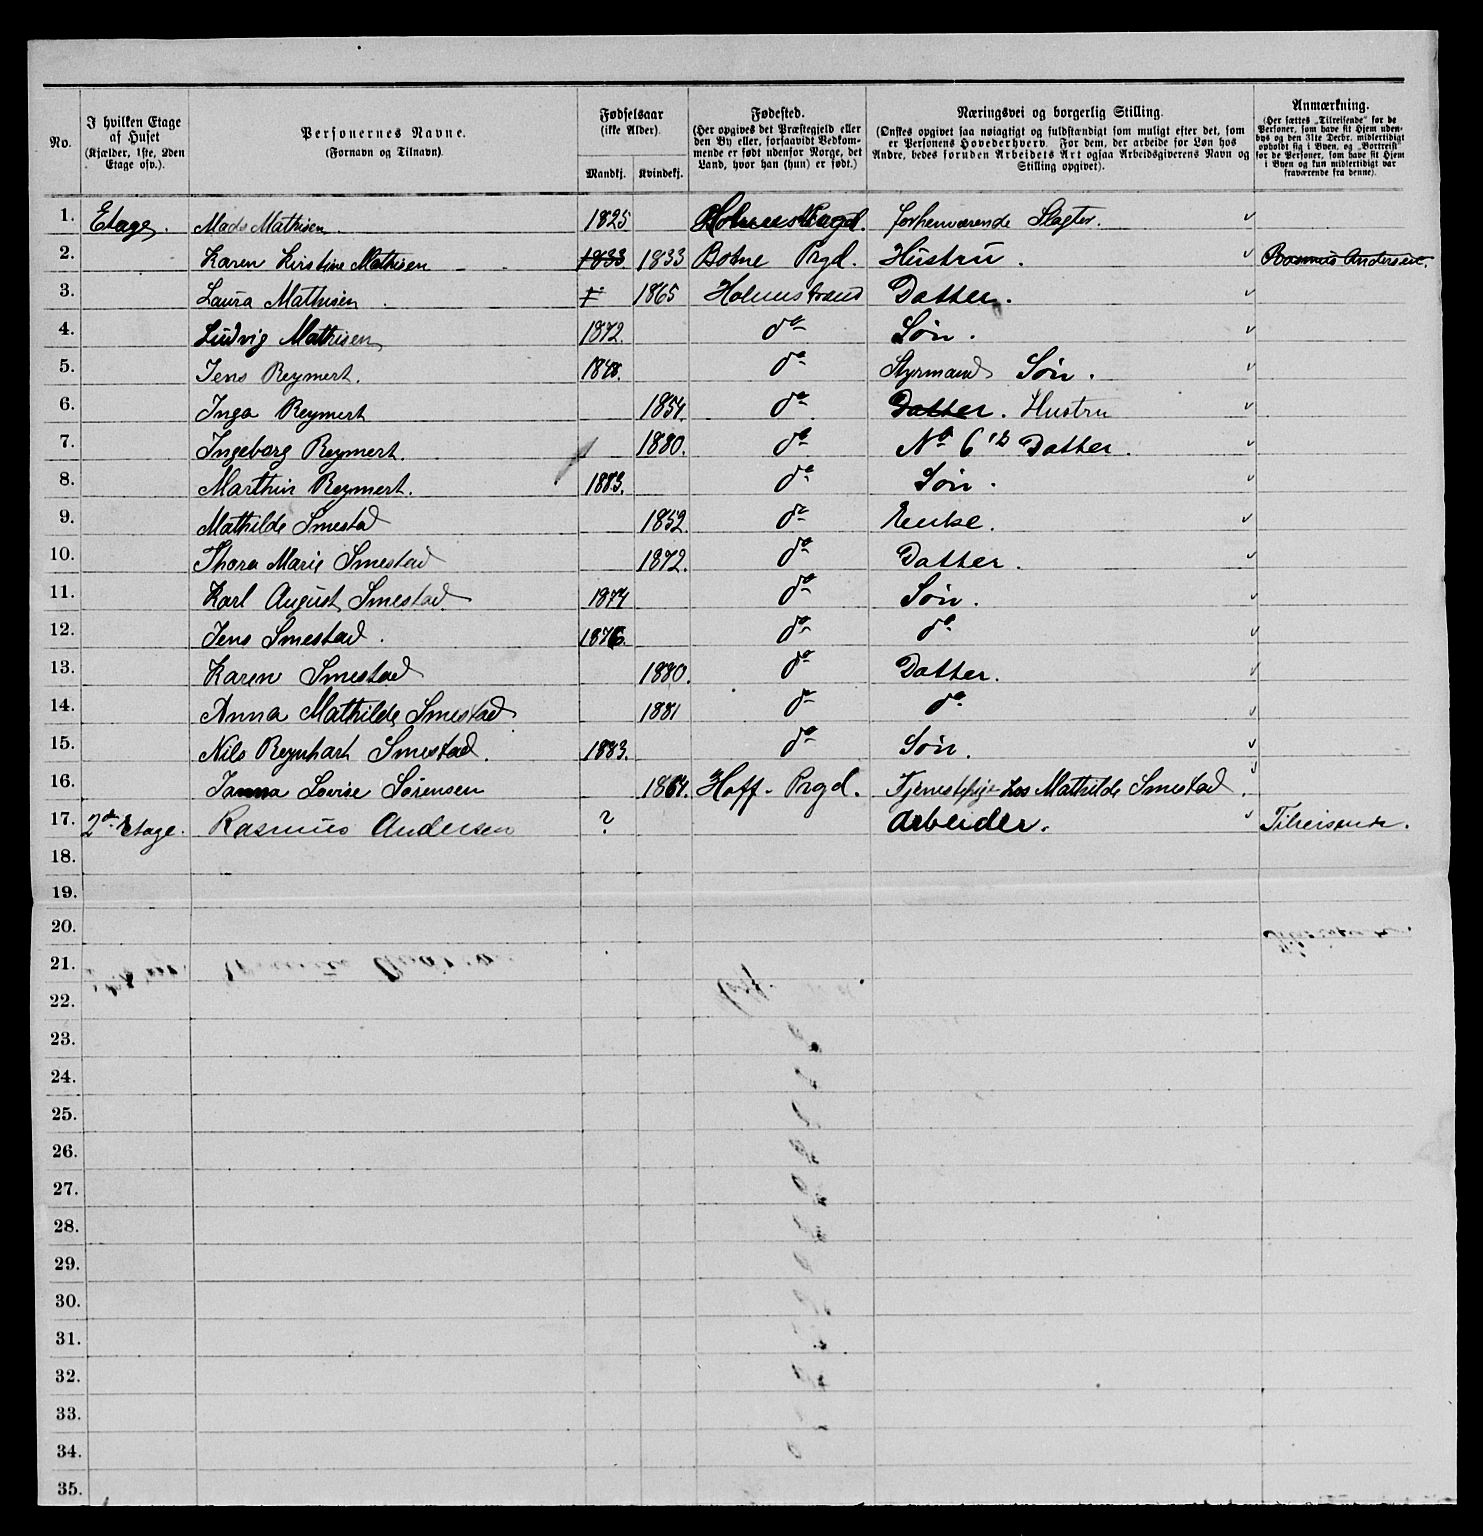 No.
I hvilken Etage af Huset (Kjælder, 1ste, 2den Etage osv.).
Personernes Navne. (Fornavn og Tilnavn).
Fødselsaar (ikke Alder).
Mandkj. Kvindekj.
Fødested. (Her opgives det Præstegjeld eller den By eller, forsaavidt Vedkommende er født udenfor Norge, det Land, hvor han (hun) er født.)
Næringsvei og borgerlig Stilling. (Ønskes opgivet saa nøiagtigt og fuldstændigt som muligt efter det, som er Personens Hovederhverv. For dem, der arbeide for Løn hos Andre, bedes foruden Arbeidets Art ogsaa Arbeidsgiverens Navn og Stilling opgivet).
Anmærkning. (Her sættes "Tilreisende" for de Personer, som have sit Hjem udenbys og den 31te Decbr. midlertidigt opholdt sig i Byen, og "Bortreist" for de Personer, som have sit Hjem i Byen og kun midlertidigt var fraværende fra denne).
1. Etage. Mads Mathisen. 1825 forhenværende Slagter.
2. Karen Kirstine Mathisen 1833 1833 Botne Prgd. Hustru. Rasmus Andersen.
3. Laura Mathisen 1865 Holmestrand Datter.
4. Ludvig Mathisen 1872. do Søn.
5. Jens Reymert. 1848. do Styrmand Søn.
6. Inga Reymert 1854 do Datter. Hustru
7. Ingeborg Reymert. 1880. do No 6's Datter.
8. Marthin Reymert. 1883. do Søn.
9. Mathilde Smestad 1852 do Enke.
10. Thora Marie Smestad 1872. do Datter.
11. Karl August Smestad 1874 do Søn.
12. Jens Smestad. 1876. do do
13. Karen Smestad 1880. do Datter.
14. Anna Mathilde Smestad 1881 do do
15. Nils Reynhart Smestad. 1883. do Søn.
16. Lovise Sørensen 1864. Hoff Prgd. Tjenestepige hos Mathilde Smestad.
17. 2den Etage. Rasmus Andersen ? Arbeider. Tilreisende.
18.
19.
20.
21.
22.
23.
24.
25.
26.
27.
28.
29.
30.
31.
32.
33.
34.
35.